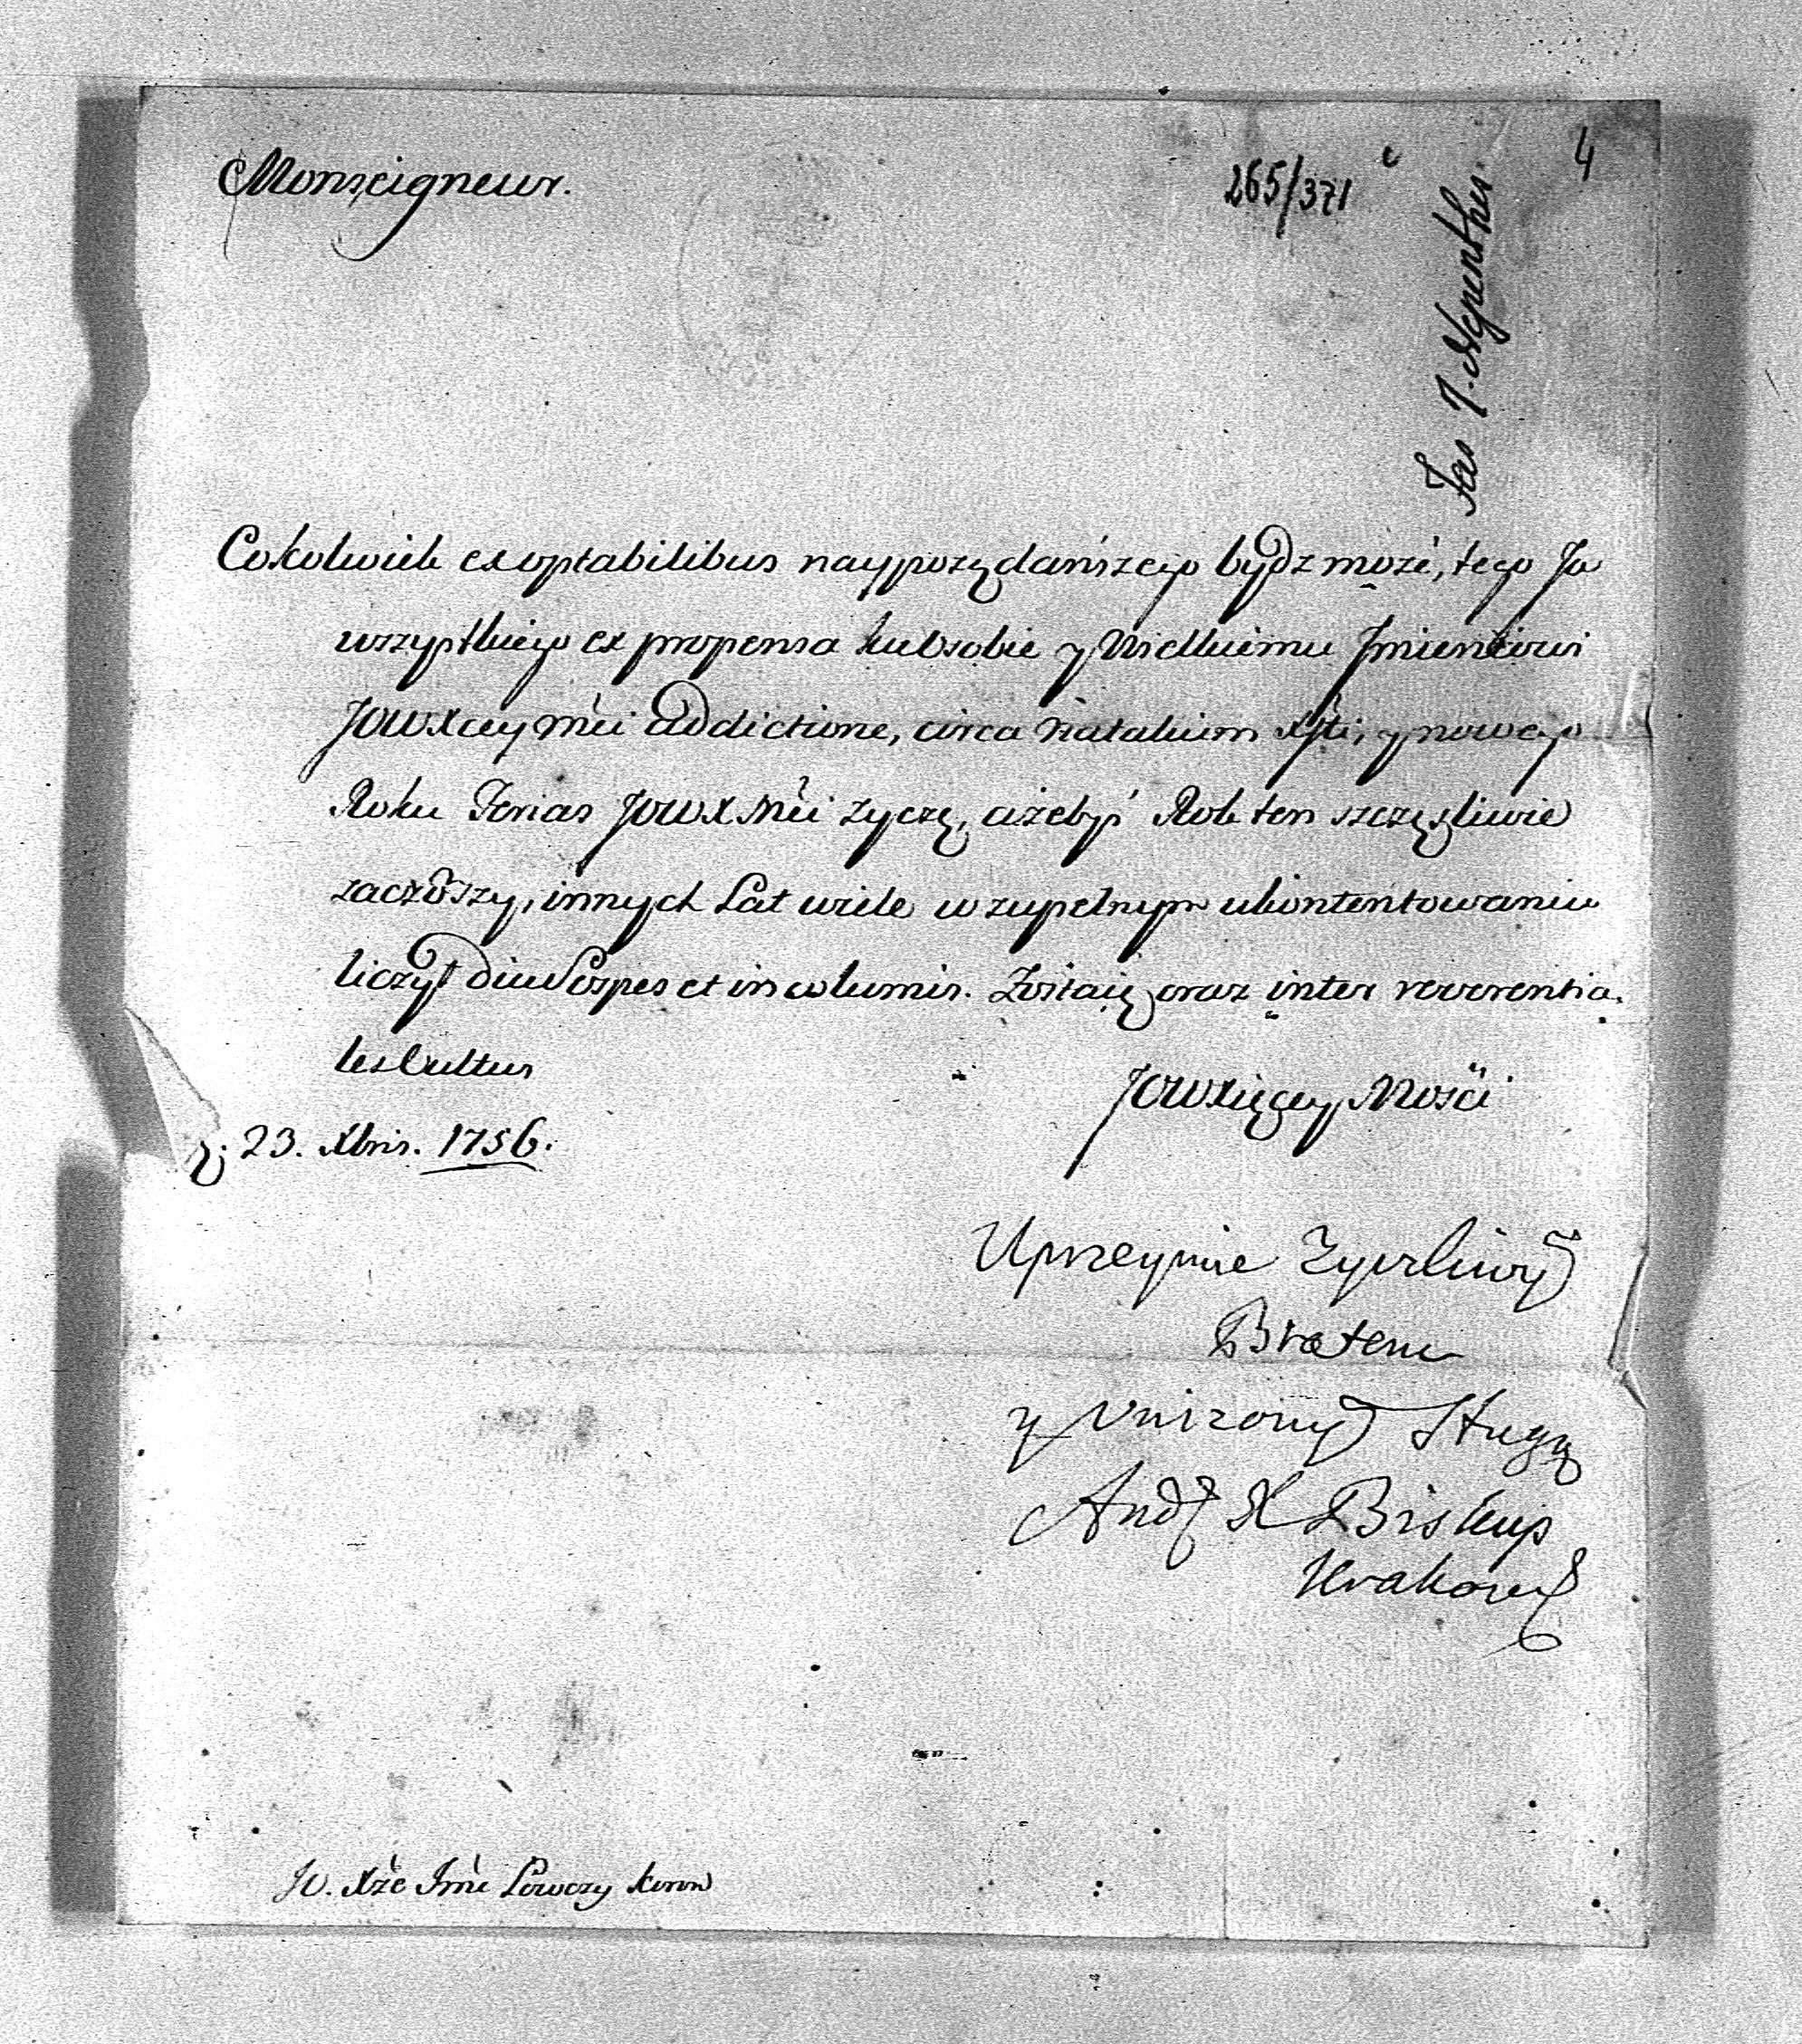 Monseigneur.
265/371
4
Cokolwiek ex optabilibus naypożądańszego bydz może, tego Ja
wszystkiego ex propensa ku Osobie y Wielkiemu Jmieniowi
JOWXcey Mći addictione, circa Natalium Xsti, y nowego
Roku Ferias JOWXMći życzę, ażebyś Rok ten szczęsliwie
zacząwszy, innych Lat wiele w zupełnym ukontentowaniu
liczył diu Sospes et incolumis. Zostaię oraz inter reverentia-
les Cultus
JOWXięcey Mości
23. Xbris. 1756.
Uprzeymie Zyczliwym
Bratem
y Unizonym Sługą
And X Biskup
Krakow
JO. Xże Jmć Łowczy Koron